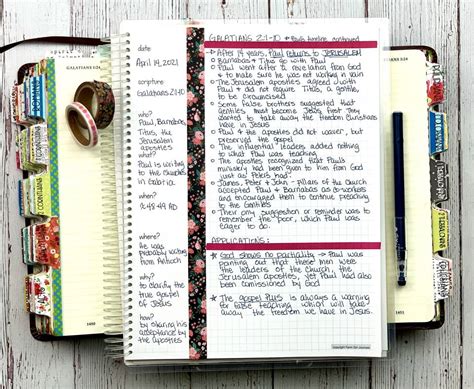 GALATIANS 1:24
date
April 19, 2021
scripture
Galatians 2:1-10
who?
Paul, Barnabas,
Titus, the
Jerusalem
apostles
what?
Paul is writing
to the churches
in Galatia
when?
48-49 AD
where?
He was
probably writing
from Antioch
why?
to clarify the
true gospel
of Jesus
how?
by sharing his
acceptance by
the apostles
GALATIANS 2:1-10 timeline continued
After 14 years, Paul returns to JERUSALEM
Barnabas + Titus go with Paul
Paul went after a revelation from God
to make sure he was not working in vain
The Jerusalem apostles agreed with
Paul + did not require Titus, a gentile,
to be circumcised
Some false brothers suggested that
Gentiles must become Jews first they
wanted to take away the freedom Christians
have in Jesus
Paul + the apostles did not waver, but
preserved the gospel
The influential leaders added nothing
to what Paul was teaching
The apostles recognized that Paul's
ministry had been given to him from God
just as Peter's had
James, Peter + John - pillars of the Church
accepted Paul + Barnabas as co-workers
and encouraged them to continue preaching
to the Gentiles
Their only suggestion or reminder was to
remember the poor, which Paul was
eager to do.
APPLICATIONS:
God shows no partiality - Paul was
pointing out that these men were
the leaders of the Church, the
Jerusalem apostles, yet Paul had also
been comissioned by God
The gospel Plus is always a warning
for false teaching which will take
away the freedom we have in Jesus.